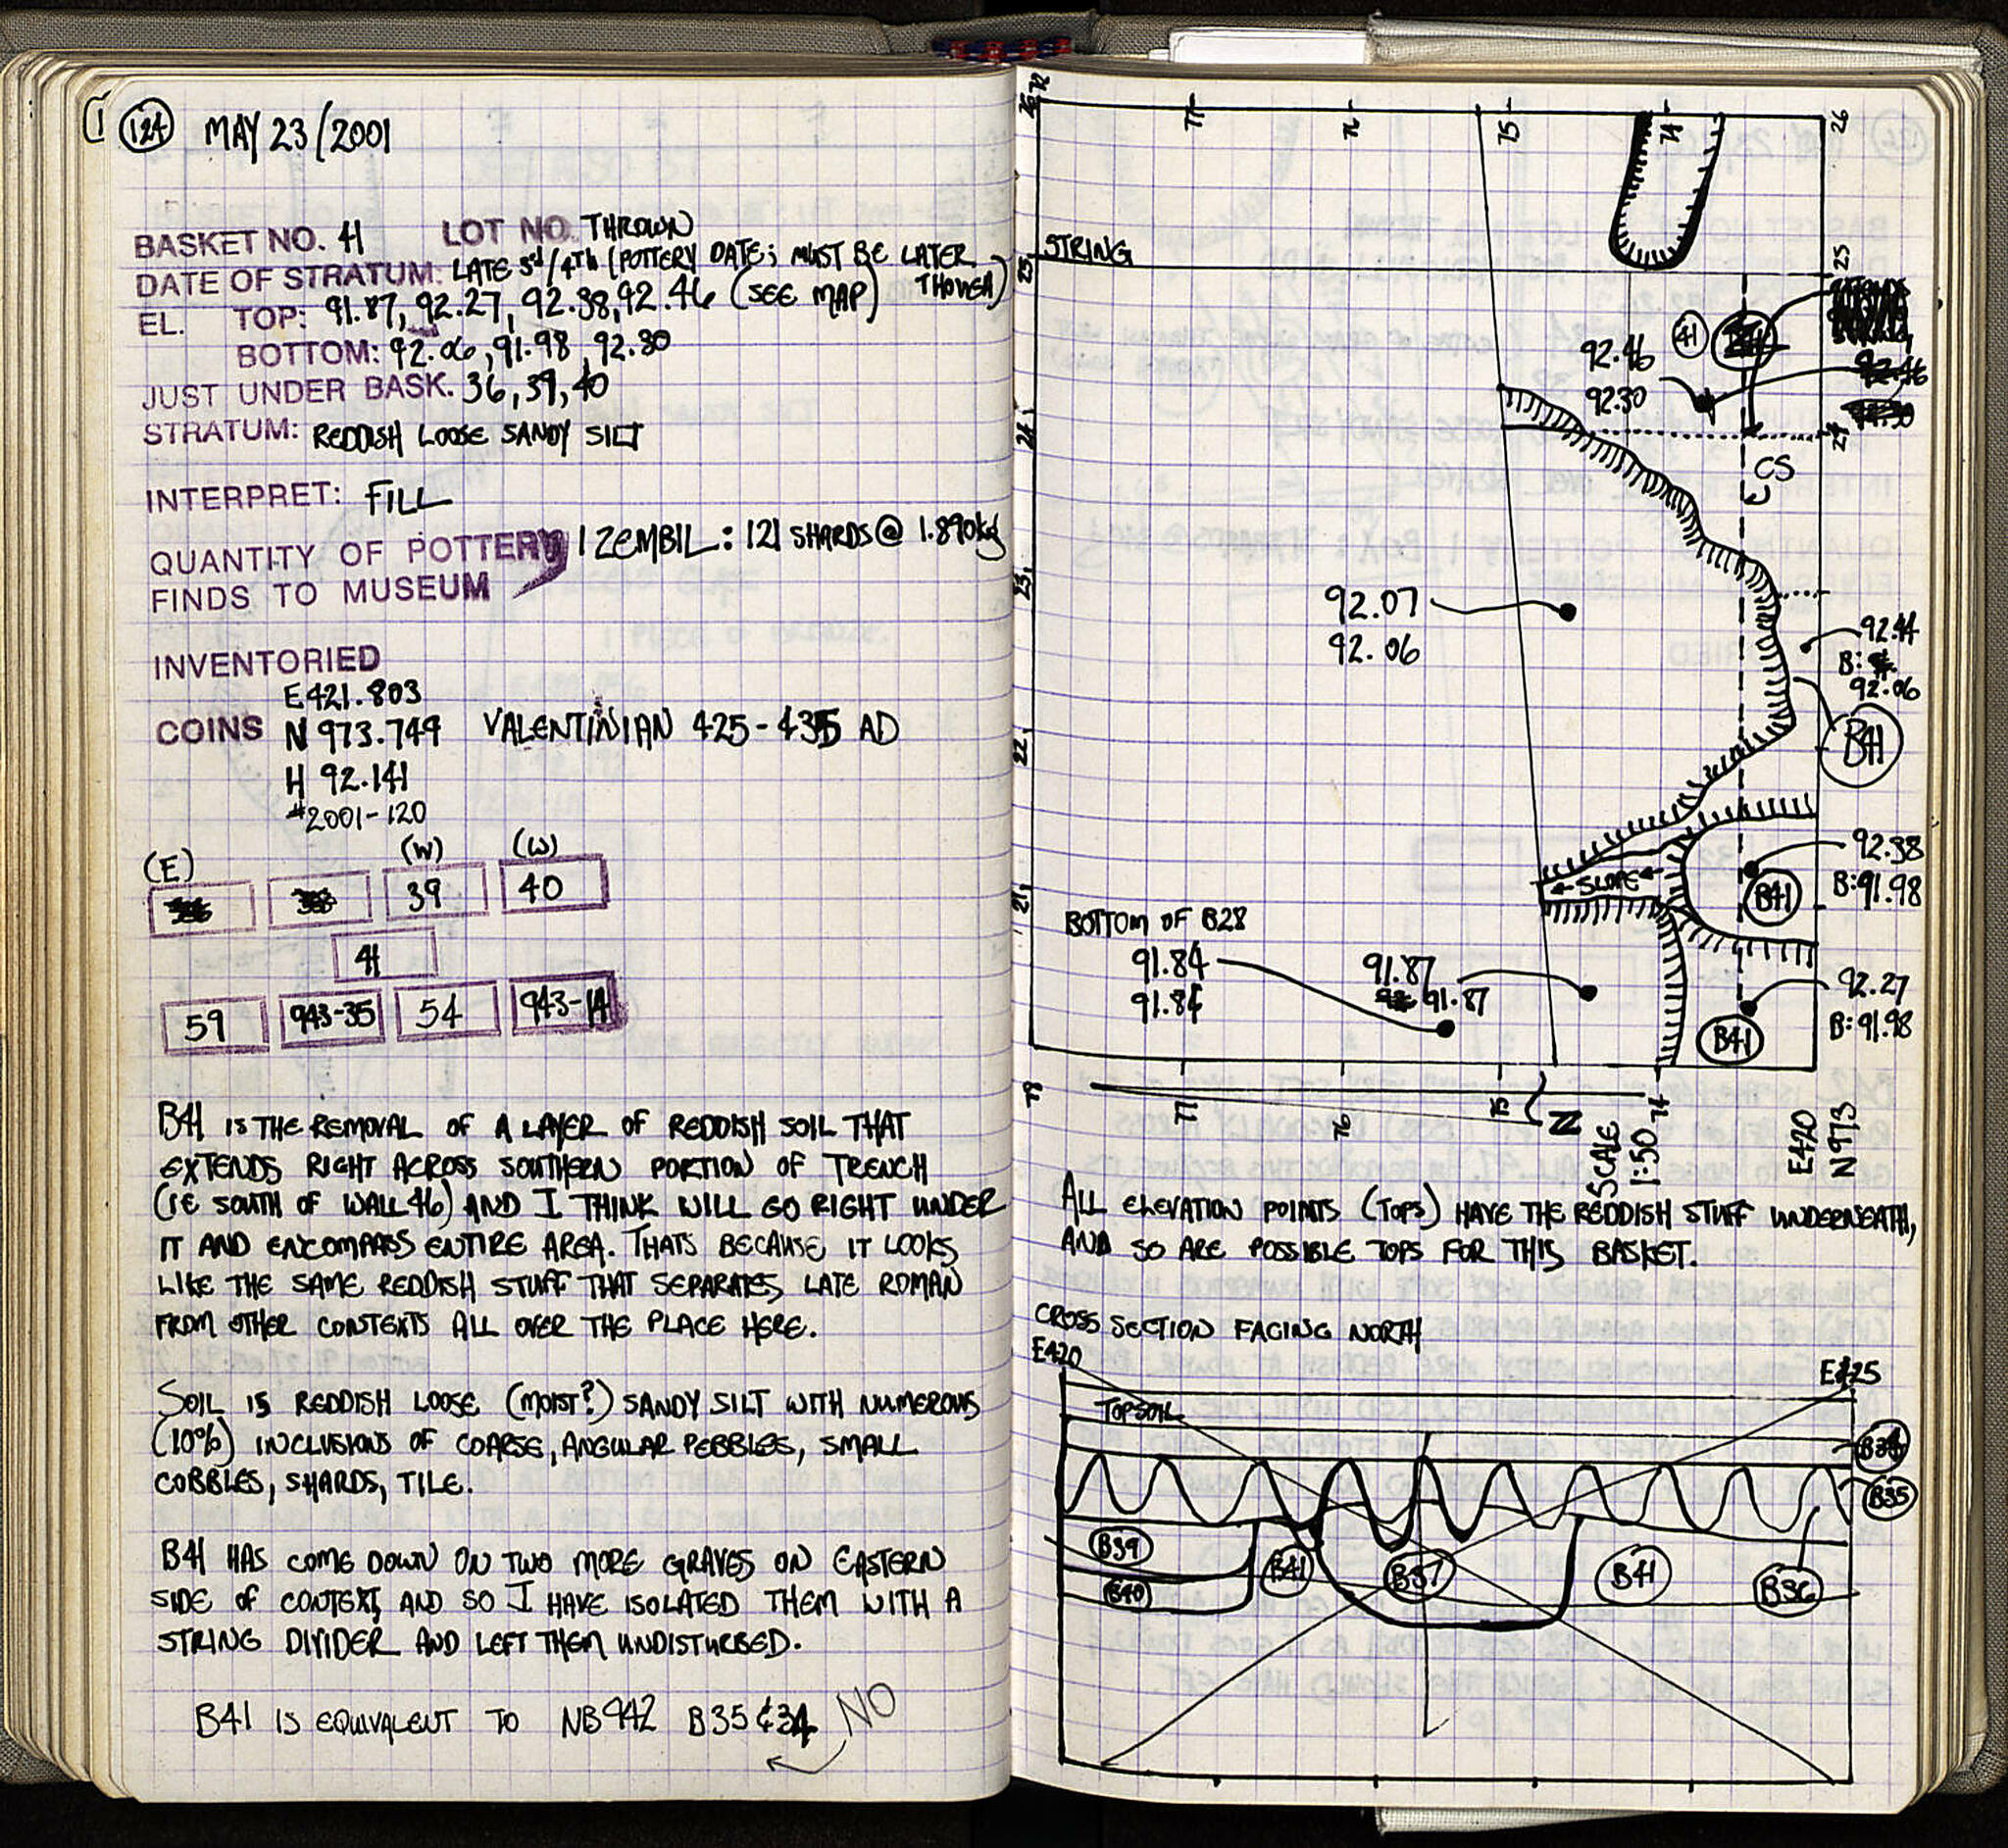 124 MAY 23/2001
BASKET NO. 41 LOT NO. THROWN
DATE OF STRATUM: LATE 3rd/4th (POTTERY DATE; MUST BE LATER
THOUGH)
EL. TOP: 91.87, 92.27, 92.38, 92.46 (SEE MAP)
BOTTOM: 92.06, 91.98, 92.30
JUST UNDER BASK. 36, 39, 40
STRATUM: REDDISH LOOSE SANDY SILT
INTERPRET: FILL
QUANTITY OF POTTERY 1 ZEMBIL: 121 SHARDS @ 1.890kg
FINDS TO MUSEUM
INVENTORIED
E421.803
COINS N 973.749 VALENTINIAN 425-435 AD
H 92.141
#2001-120
(E) (W) (W)
39 40
41
59 943-35 54 943-14
B41 IS THE REMOVAL OF A LAYER OF REDDISH SOIL THAT
EXTENDS RIGHT ACROSS SOUTHERN PORTION OF TRENCH
(IE SOUTH OF WALL 46) AND I THINK WILL GO RIGHT UNDER
IT AND ENCOMPASS ENTIRE AREA. THATS BECAUSE IT LOOKS
LIKE THE SAME REDDISH STUFF THAT SEPARATES LATE ROMAN
FROM OTHER CONTEXTS ALL OVER THE PLACE HERE.
SOIL IS REDDISH LOOSE (MOIST?) SANDY SILT WITH NUMEROUS
(10%) INCLUSIONS OF COARSE, ANGULAR PEBBLES, SMALL
COBBLES, SHARDS, TILE.
B41 HAS COME DOWN ON TWO MORE GRAVES ON EASTERN
SIDE OF CONTEXT, AND SO I HAVE ISOLATED THEM WITH A
STRING DIVIDER AND LEFT THEM UNDISTURBED.
B41 IS EQUIVALENT TO NB942 B35 & 34 NO
26 77 76 75 74 26
STRING
25 25
92.46 41
92.30 92.46
24 24
CS
23
92.07
92.06
92.44
B:
92.06
B41
22
92.38
B:91.98
B41
←SLOPE←
21
BOTTOM OF B28
91.84 91.87
91.84 91.87
92.27
B:91.98
B41
77 76 75 74
N
SCALE
1:50
E420
N973
ALL ELEVATION POINTS (TOPS) HAVE THE REDDISH STUFF UNDERNEATH,
AND SO ARE POSSIBLE TOPS FOR THIS BASKET.
CROSS SECTION FACING NORTH
E420 E425
TOPSOIL
B34
B35
B39 B41 B37 B41 B36
B40